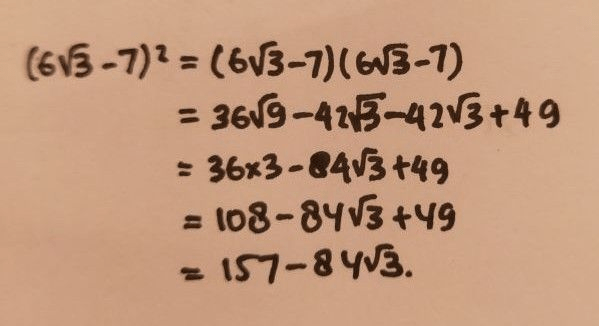 (6√3 - 7)² = (6√3-7)(6√3-7)
= 36√9 - 42√3 - 42√3 + 49
= 36×3 - 84√3 + 49
= 108 - 84√3 + 49
= 157 - 84√3.